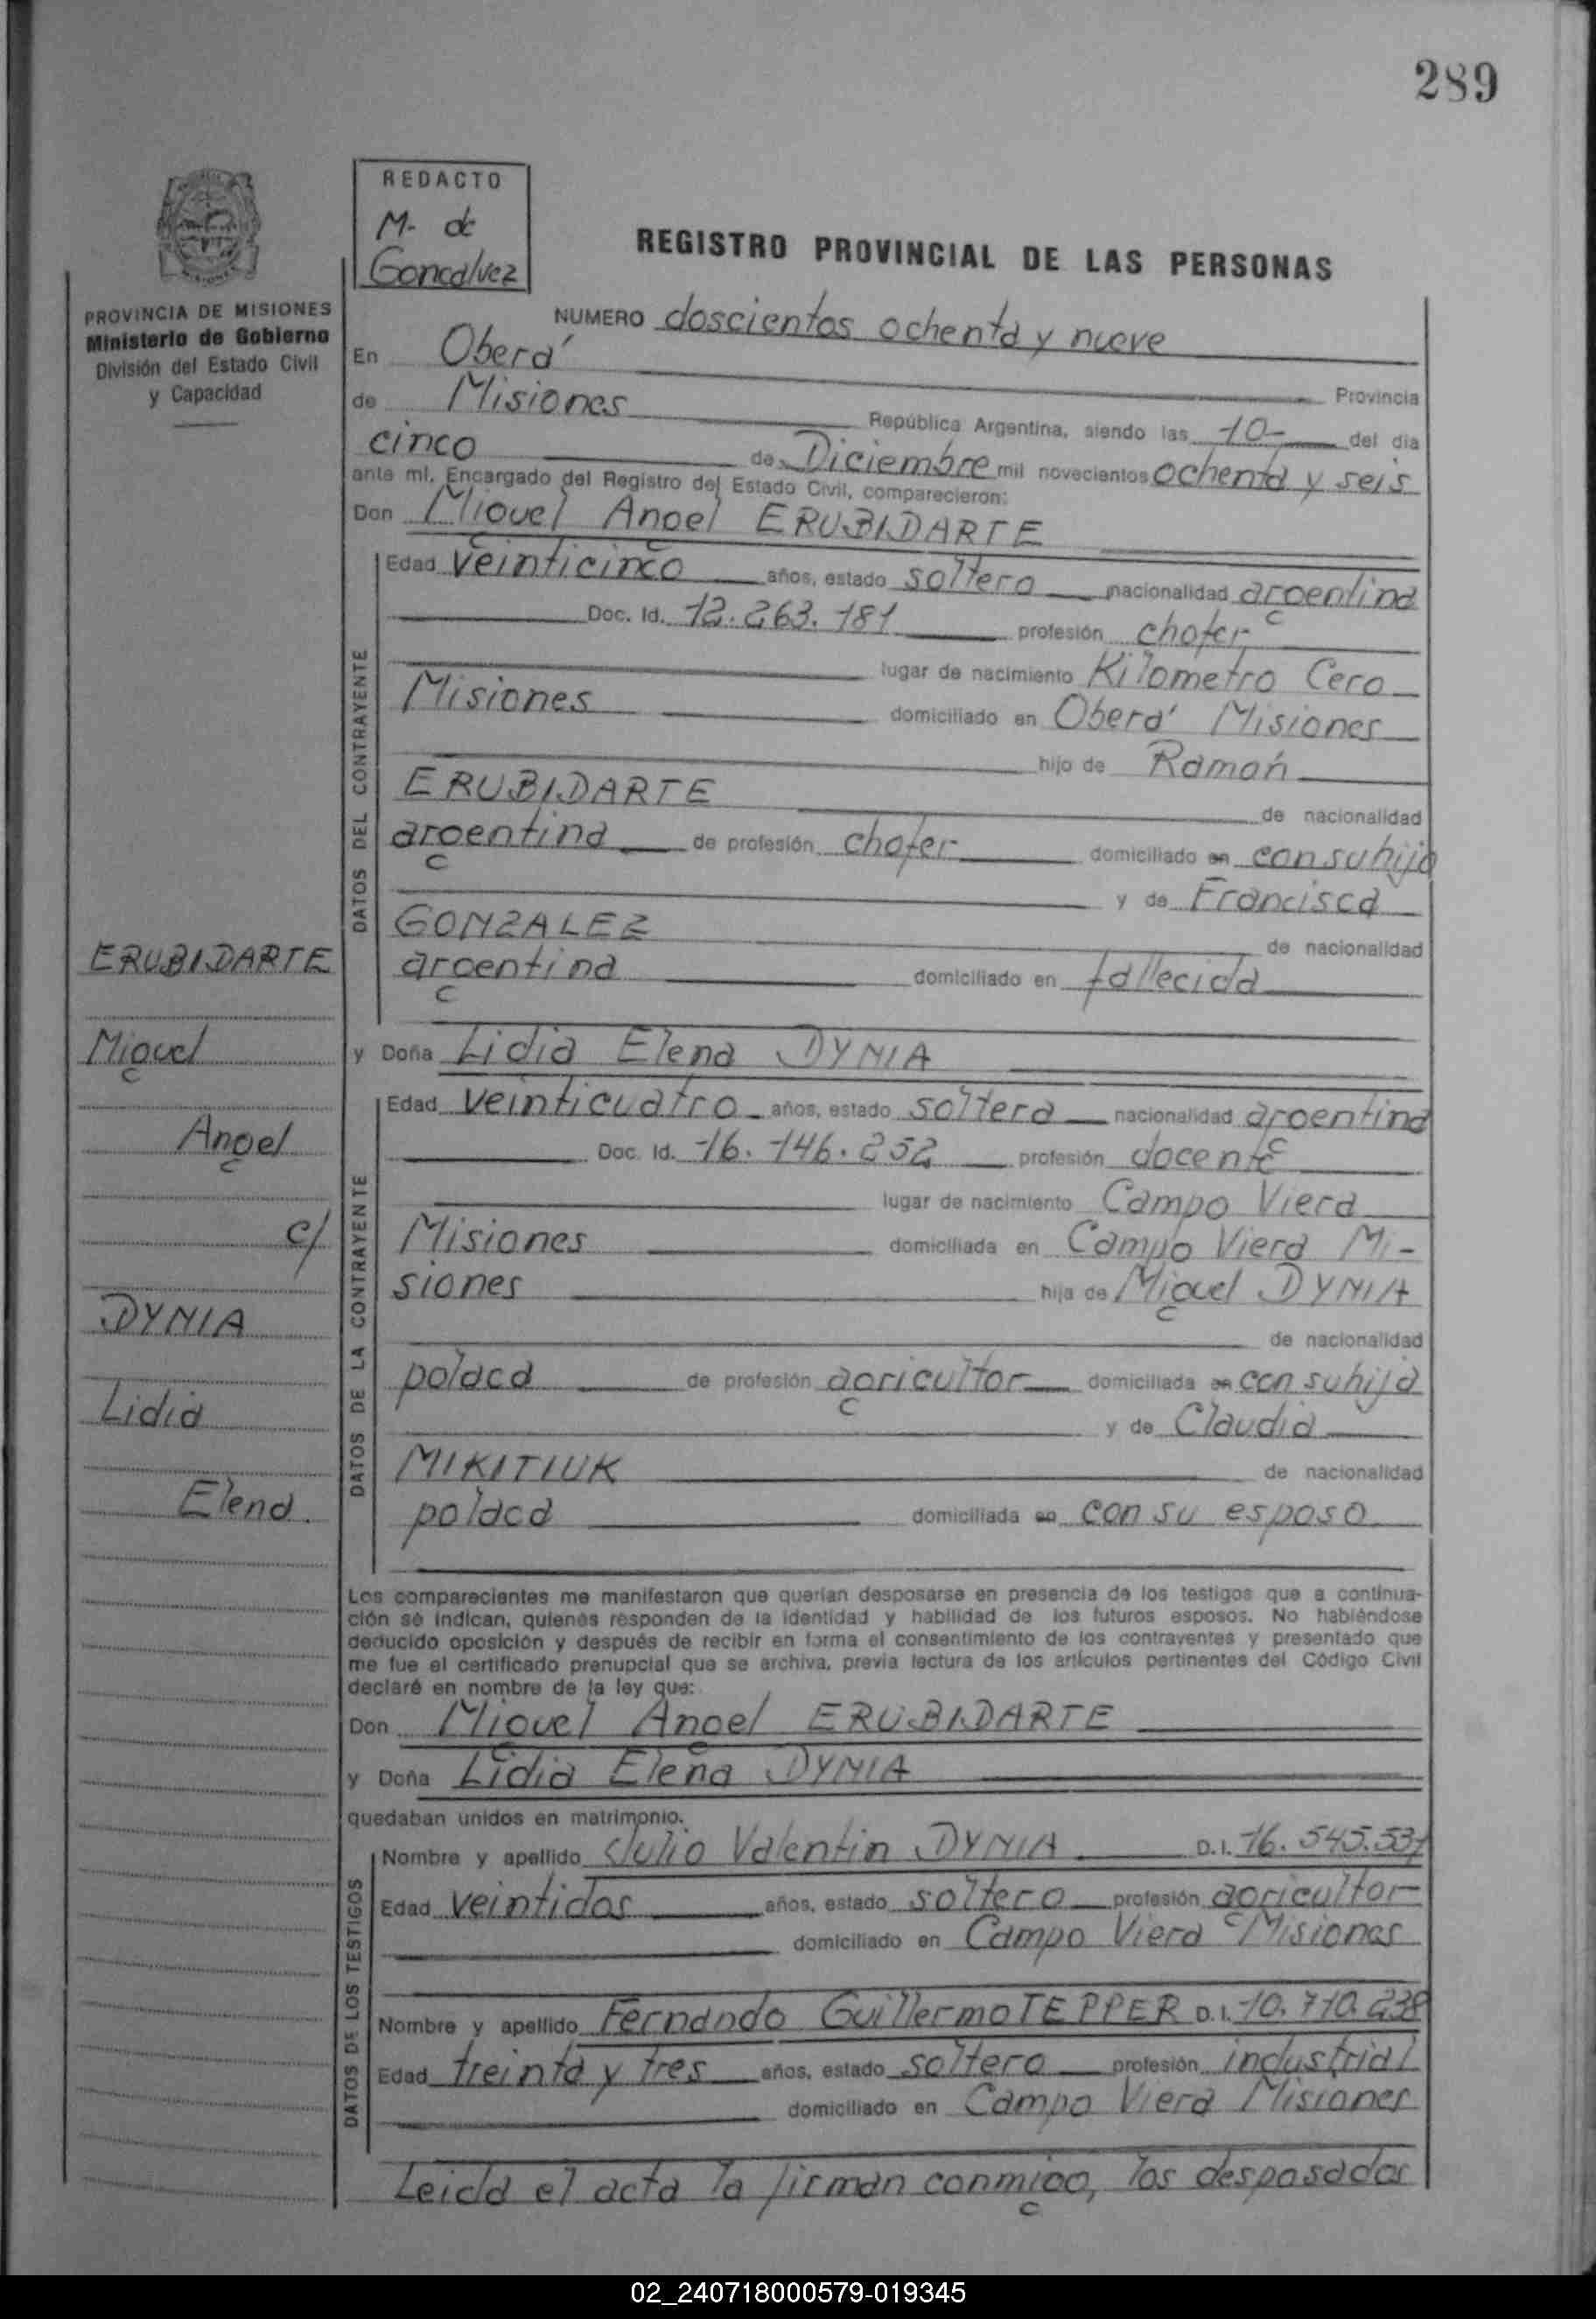 289
REDACTO
M. de
Goncalvez
REGISTRO PROVINCIAL DE LAS PERSONAS
PROVINCIA DE MISIONES
Ministerio de Gobierno
División del Estado Civil
y Capacidad
NUMERO doscientos ochenta y nueve
En Oberá Provincia
de Misiones República Argentina, siendo las 10- del dia
cinco de Diciembre mil novecientos ochenta y seis
ante mí, Encargado del Registro del Estado Civil, comparecieron:
Don Miguel Angel ERUBIDARTE
DATOS DEL CONTRAYENTE
Edad veinticinco años, estado soltero nacionalidad argentina
Doc. Id. 12.263.181 profesión chofer
lugar de nacimiento Kilometro Cero
Misiones domiciliado en Oberá Misiones
hijo de Ramón
ERUBIDARTE de nacionalidad
argentina de profesión chofer domiciliado en con su hijo
y de Francisca
GONZALEZ de nacionalidad
argentina domiciliado en fallecida
y Doña Lidia Elena DYNIA
DATOS DE LA CONTRAYENTE
Edad veinticuatro años, estado soltera nacionalidad argentina
Doc. Id. 16.146.252 profesión docente
lugar de nacimiento Campo Viera
Misiones domiciliada en Campo Viera Mi-
siones hija de Miguel DYNIA
de nacionalidad
polaca de profesión agricultor domiciliada en con su hija
y de Claudia
MIKITIUK de nacionalidad
polaca domiciliada en con su esposo
ERUBIDARTE
Miguel
Angel
c/
DYNIA
Lidia
Elena.
Los comparecientes me manifestaron que querían desposarse en presencia de los testigos que a continua-
ción se indican, quienes responden de la identidad y habilidad de los futuros esposos. No habiéndose
deducido oposición y después de recibir en forma el consentimiento de los contrayentes y presentado que
me fue el certificado prenupcial que se archiva, previa lectura de los artículos pertinentes del Código Civil
declaré en nombre de la ley que:
Don Miguel Angel ERUBIDARTE
y Doña Lidia Elena DYNIA
quedaban unidos en matrimonio.
DATOS DE LOS TESTIGOS
Nombre y apellido Julio Valentin DYNIA D.I. 16.545.531
Edad veintidos años, estado soltero profesión agricultor
domiciliado en Campo Viera Misiones
Nombre y apellido Fernando Guillermo TEPPER D.I. 10.710.238
Edad treinta y tres años, estado soltero profesión industrial
domiciliado en Campo Viera Misiones
Leida el acta la firman conmigo, los desposados
02_240718000579-019345